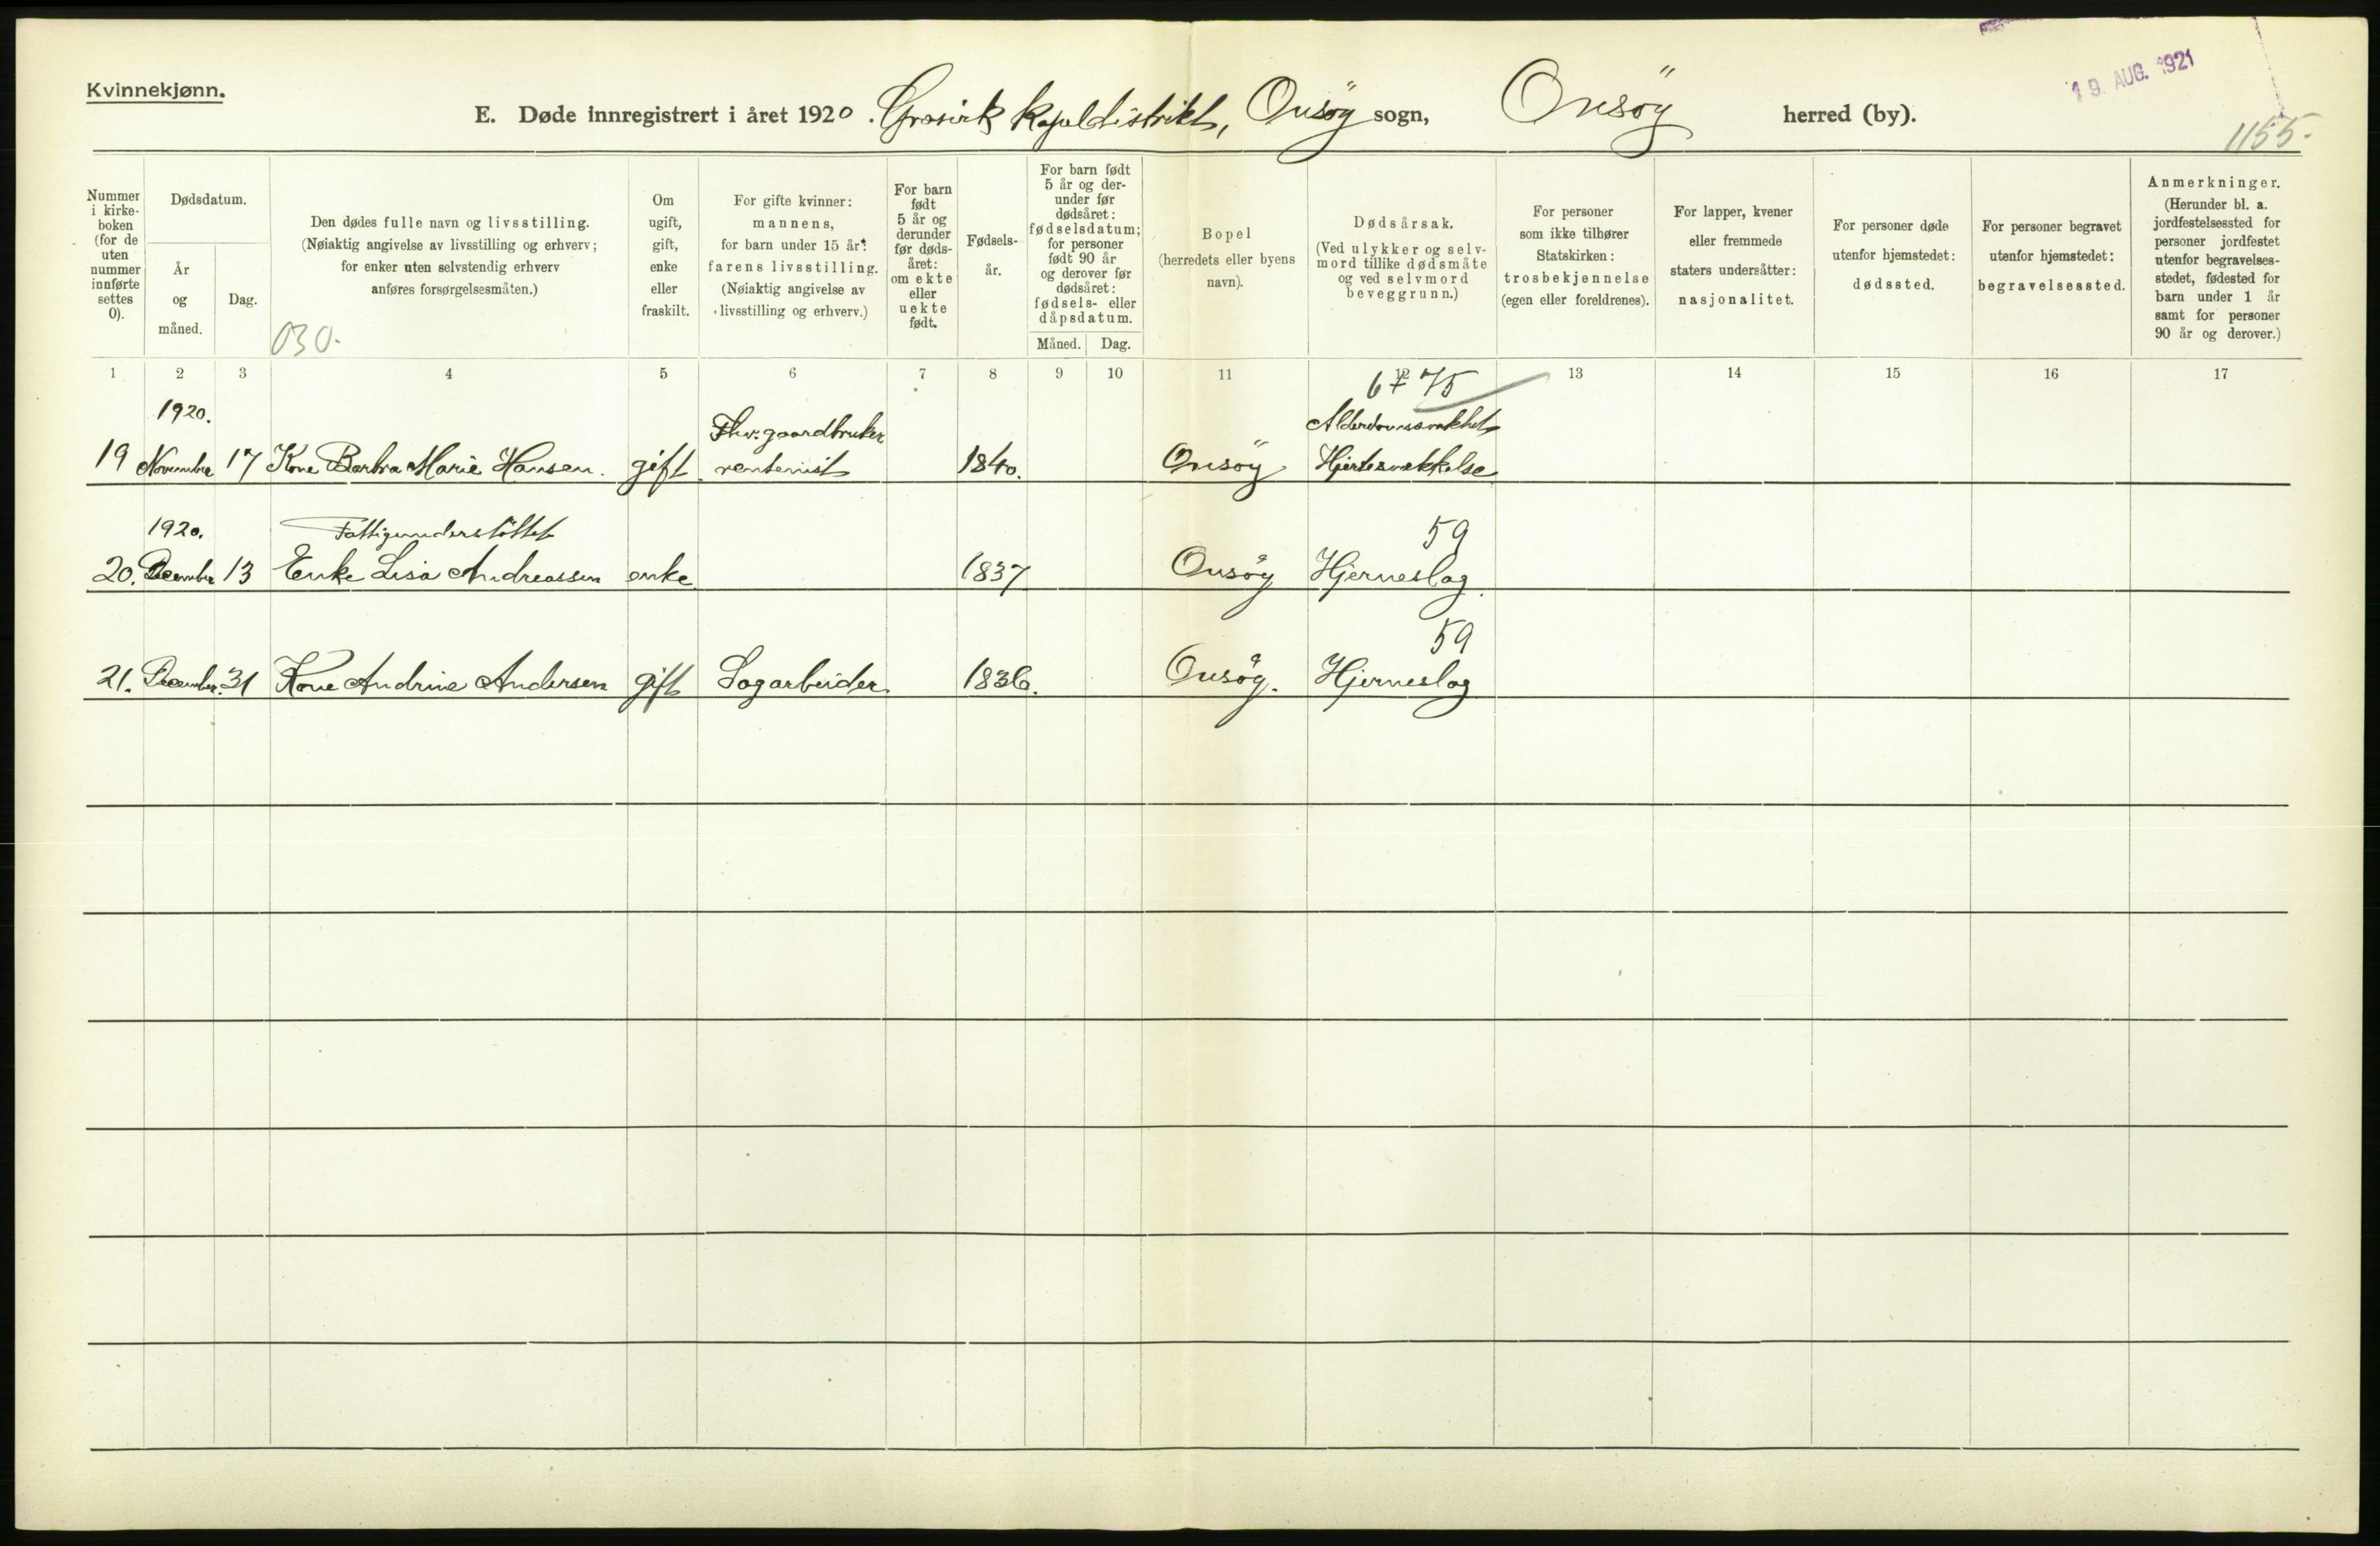 Kvinnekjønn.
19. AUG. 1921
E. Døde innregistrert i året 1920. Onsöy sogn, Onsöy herred (by).
1155.
Nummer i kirke-boken (for de uten nummer innførte settes 0).
Dødsdatum.
År og måned.
Dag.
Den dødes fulle navn og livsstilling. (Nøiaktig angivelse av livsstilling og erhverv; for enker uten selvstendig erhverv anføres forsørgelsesmåten.)
030.
Om ugift, gift, enke eller fraskilt.
For gifte kvinner: mannens, for barn under 15 år: farens livsstilling. (Nøiaktig angivelse av livsstilling og erhverv.)
For barn født 5 år og derunder før døds-året: om ekte eller uekte født.
Fødsels-år.
For barn født 5 år og der-under før dødsåret: fødselsdatum; for personer født 90 år og derover før dødsåret: fødsels- eller dåpsdatum.
Måned.
Dag.
Bopel (herredets eller byens navn).
Dødsårsak. (Ved ulykker og selv-mord tillike dødsmåte og ved selvmord beveggrunn.)
For personer som ikke tilhører Statskirken: trosbekjennelse (egen eller foreldrenes).
For lapper, kvener eller fremmede staters undersåtter: nasjonalitet.
For personer døde utenfor hjemstedet: dødssted.
For personer begravet utenfor hjemstedet: begravelsessted.
Anmerkninger. (Herunder bl. a. jordfestelsessted for personer jordfestet utenfor begravelses-stedet, fødested for barn under 1 år samt for personer 90 år og derover.)
1 2 3 4 5 6 7 8 9 10 11 12 13 14 15 16 17
75
1920. Fhv. gaardbruker Alderdomssvakhet
19 November 17 Kone Barbra Marie Hansen. gift rentenist 1840. Onsöy Hjertesvekkelse
1920. Fattigunderstöttet 59
20. December 13 Enke Lisa Andreassen enke 1837 Onsöy Hjerneslag.
59
21. December. 31 Kone Andrine Andersen gift Sagarbeider 1836. Onsöy. Hjerneslag